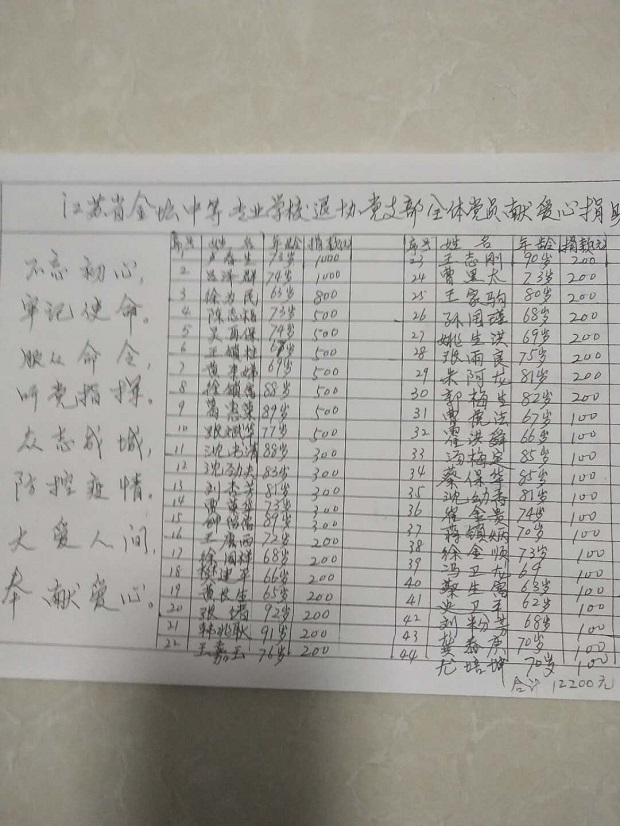 江苏省金坛中等专业学校退协党支部全体党员献爱心捐
不忘初心,
牢记使命。
服从命令,
听党指挥。
众志成城,
防控疫情。
大爱人间,
奉献爱心。
序号 姓名 年龄 捐款元
1 73岁 1000
2 74岁 1000
3 徐为民 63岁 800
4 陈志 73岁 500
5 吴再保 74岁 500
6 王锁柱 500
7 69岁 500
8 徐锁 88岁 500
9 89岁 500
10 77岁 500
11 沈 清 88岁 300
12 沈 夫 83岁 300
13 刘杏芳 81岁 300
14 73岁 300
15 89岁 300
16 王 西 72岁 200
17 徐国祥 68岁 200
18 建平 66岁 200
19 黄长生 65岁 200
20 张 92岁 200
21 91岁 200
22 王嘉玉 76岁 200
序号 姓名 年龄 捐款元
23 王志刚 90岁 200
24 曹黑大 73岁 200
25 王家驹 80岁 200
26 孙国瑛 68岁 200
27 姚生洪 69岁 200
28 张雨寒 75岁 200
29 朱阿龙 81岁 200
30 郭梅生 82岁 200
31 曹俊法 67岁 100
32 洪舜 66岁 100
33 汤梅 85岁 100
34 蔡保华 85岁 100
35 沈幼香 81岁 100
36 崔金贵 74岁 100
37 蒋锁炳 70岁 100
38 徐金顺 73岁 100
39 冯卫龙 69 100
40 生富 63岁 100
41 卫 62岁 100
42 刘粉 68岁 100
43 龚 庚 70岁 100
44 尤培坤 70岁 100
合计 12200元